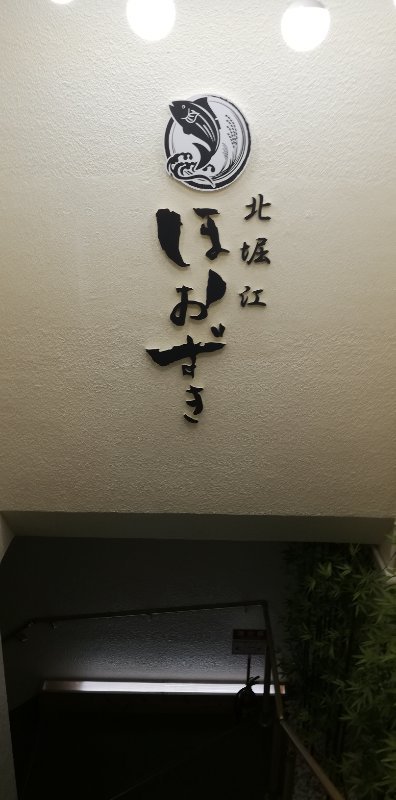 北堀江
ほおずき